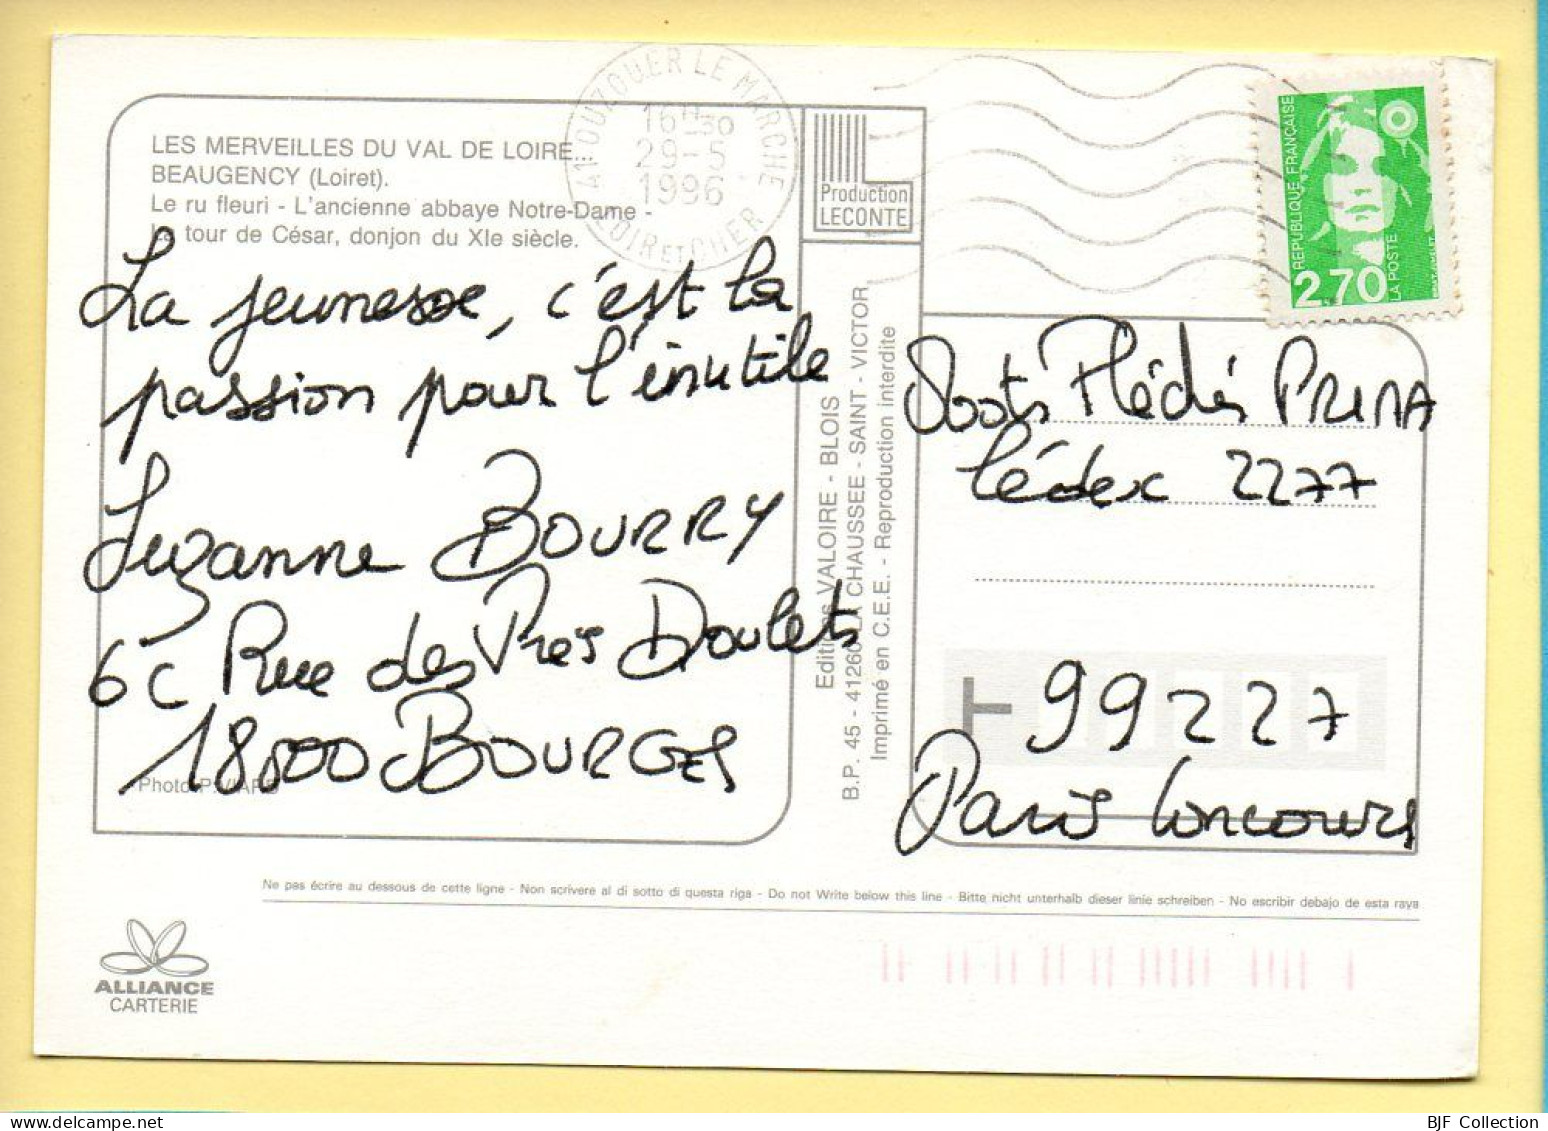 LES MERVEILLES DU VAL DE LOIRE
BEAUGENCY (Loiret).
Le ru fleuri - L'ancienne abbaye Notre-Dame -
La tour de César, donjon du XIe siècle.
41 OUZOUER LE MARCHE
16H30
29-5
1996
LOIR ET CHER
Production
LECONTE
REPUBLIQUE FRANÇAISE
2,70
LA POSTE
La jeunesse, c'est la
passion pour l'inutile
Suzanne BOURRY
6C Rue des Prés Doulets
18000 BOURGES
Photo P. VIARD
Editions VALOIRE - BLOIS
B.P. 45 - 41260 LA CHAUSSEE - SAINT - VICTOR
Imprimé en C.E.E. - Reproduction interdite
Mots Fléchés PRIMA
Cédex 2277
99227
Paris Concours
Ne pas écrire au dessous de cette ligne - Non scrivere al di sotto di questa riga - Do not Write below this line - Bitte nicht unterhalb dieser linie schreiben - No escribir debajo de esta raya
ALLIANCE
CARTERIE
BJF Collection